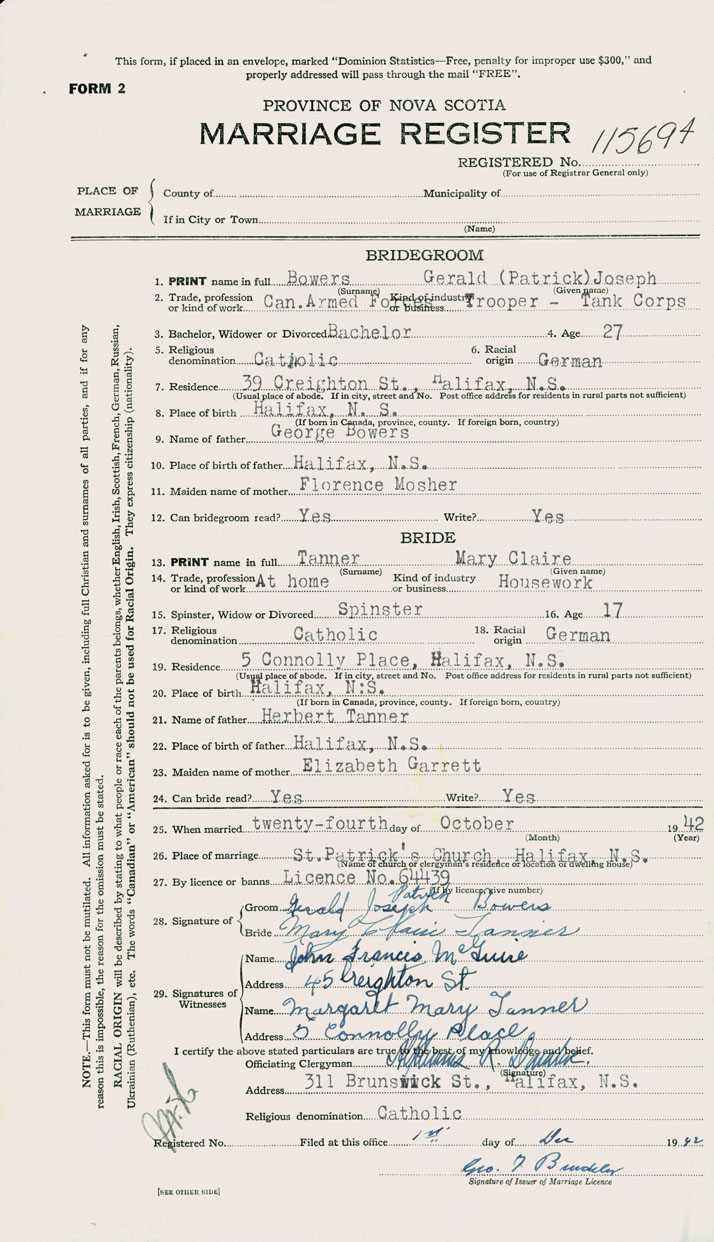 This form, if placed in an envelope, marked "Dominion Statistics—Free, penalty for improper use $300," and
properly addressed will pass through the mail "FREE".
FORM 2
PROVINCE OF NOVA SCOTIA
MARRIAGE REGISTER 115694
REGISTERED No.
(For use of Registrar General only)
PLACE OF MARRIAGE
County of Municipality of
If in City or Town
(Name)
BRIDEGROOM
1. PRINT name in full Bowers Gerald (Patrick)Joseph
(Surname) (Given name)
2. Trade, profession or kind of work Can.Armed Forces Kind of industry or business Trooper - Tank Corps
3. Bachelor, Widower or Divorced Bachelor 4. Age 27
5. Religious denomination Catholic 6. Racial origin German
7. Residence 39 Creighton St., Halifax, N.S.
(Usual place of abode. If in city, street and No. Post office address for residents in rural parts not sufficient)
8. Place of birth Halifax, N. S.
(If born in Canada, province, county. If foreign born, country)
9. Name of father George Bowers
10. Place of birth of father Halifax, N.S.
11. Maiden name of mother Florence Mosher
12. Can bridegroom read? Yes Write? Yes
BRIDE
13. PRINT name in full Tanner Mary Claire
(Surname) (Given name)
14. Trade, profession or kind of work At home Kind of industry or business Housework
15. Spinster, Widow or Divorced Spinster 16. Age 17
17. Religious denomination Catholic 18. Racial origin German
19. Residence 5 Connolly Place, Halifax, N.S.
(Usual place of abode. If in city, street and No. Post office address for residents in rural parts not sufficient)
20. Place of birth Halifax, N:S.
(If born in Canada, province, county. If foreign born, country)
21. Name of father Herbert Tanner
22. Place of birth of father Halifax, N.S.
23. Maiden name of mother Elizabeth Garrett
24. Can bride read? Yes Write? Yes
25. When married twenty-fourth day of October 1942
(Month) (Year)
26. Place of marriage St.Patrick's Church, Halifax, N.S.
(Name of church or clergyman's residence or location or dwelling house)
27. By licence or banns Licence No.64439
(If by licence, give number)
28. Signature of
Groom Gerald Joseph Patrick Bowers
Bride Mary Claire Tanner
29. Signatures of Witnesses
Name John Francis McGuire
Address 45 Creighton St.
Name Margaret Mary Tanner
Address 5 Connolly Place
I certify the above stated particulars are true to the best of my knowledge and belief.
Officiating Clergyman
(Signature)
Address 311 Brunswick St., Halifax, N.S.
Religious denomination Catholic
Registered No. Filed at this office 1st day of Dec 1942
Geo. F
Signature of Issuer of Marriage Licence
[SEE OTHER SIDE]
NOTE.—This form must not be mutilated. All information asked for is to be given, including full Christian and surnames of all parties, and if for any
reason this is impossible, the reason for the omission must be stated.
RACIAL ORIGIN will be described by stating to what people or race each of the parents belongs, whether English, Irish, Scottish, French, German, Russian,
Ukrainian (Ruthenian), etc. The words "Canadian" or "American" should not be used for Racial Origin. They express citizenship (nationality).